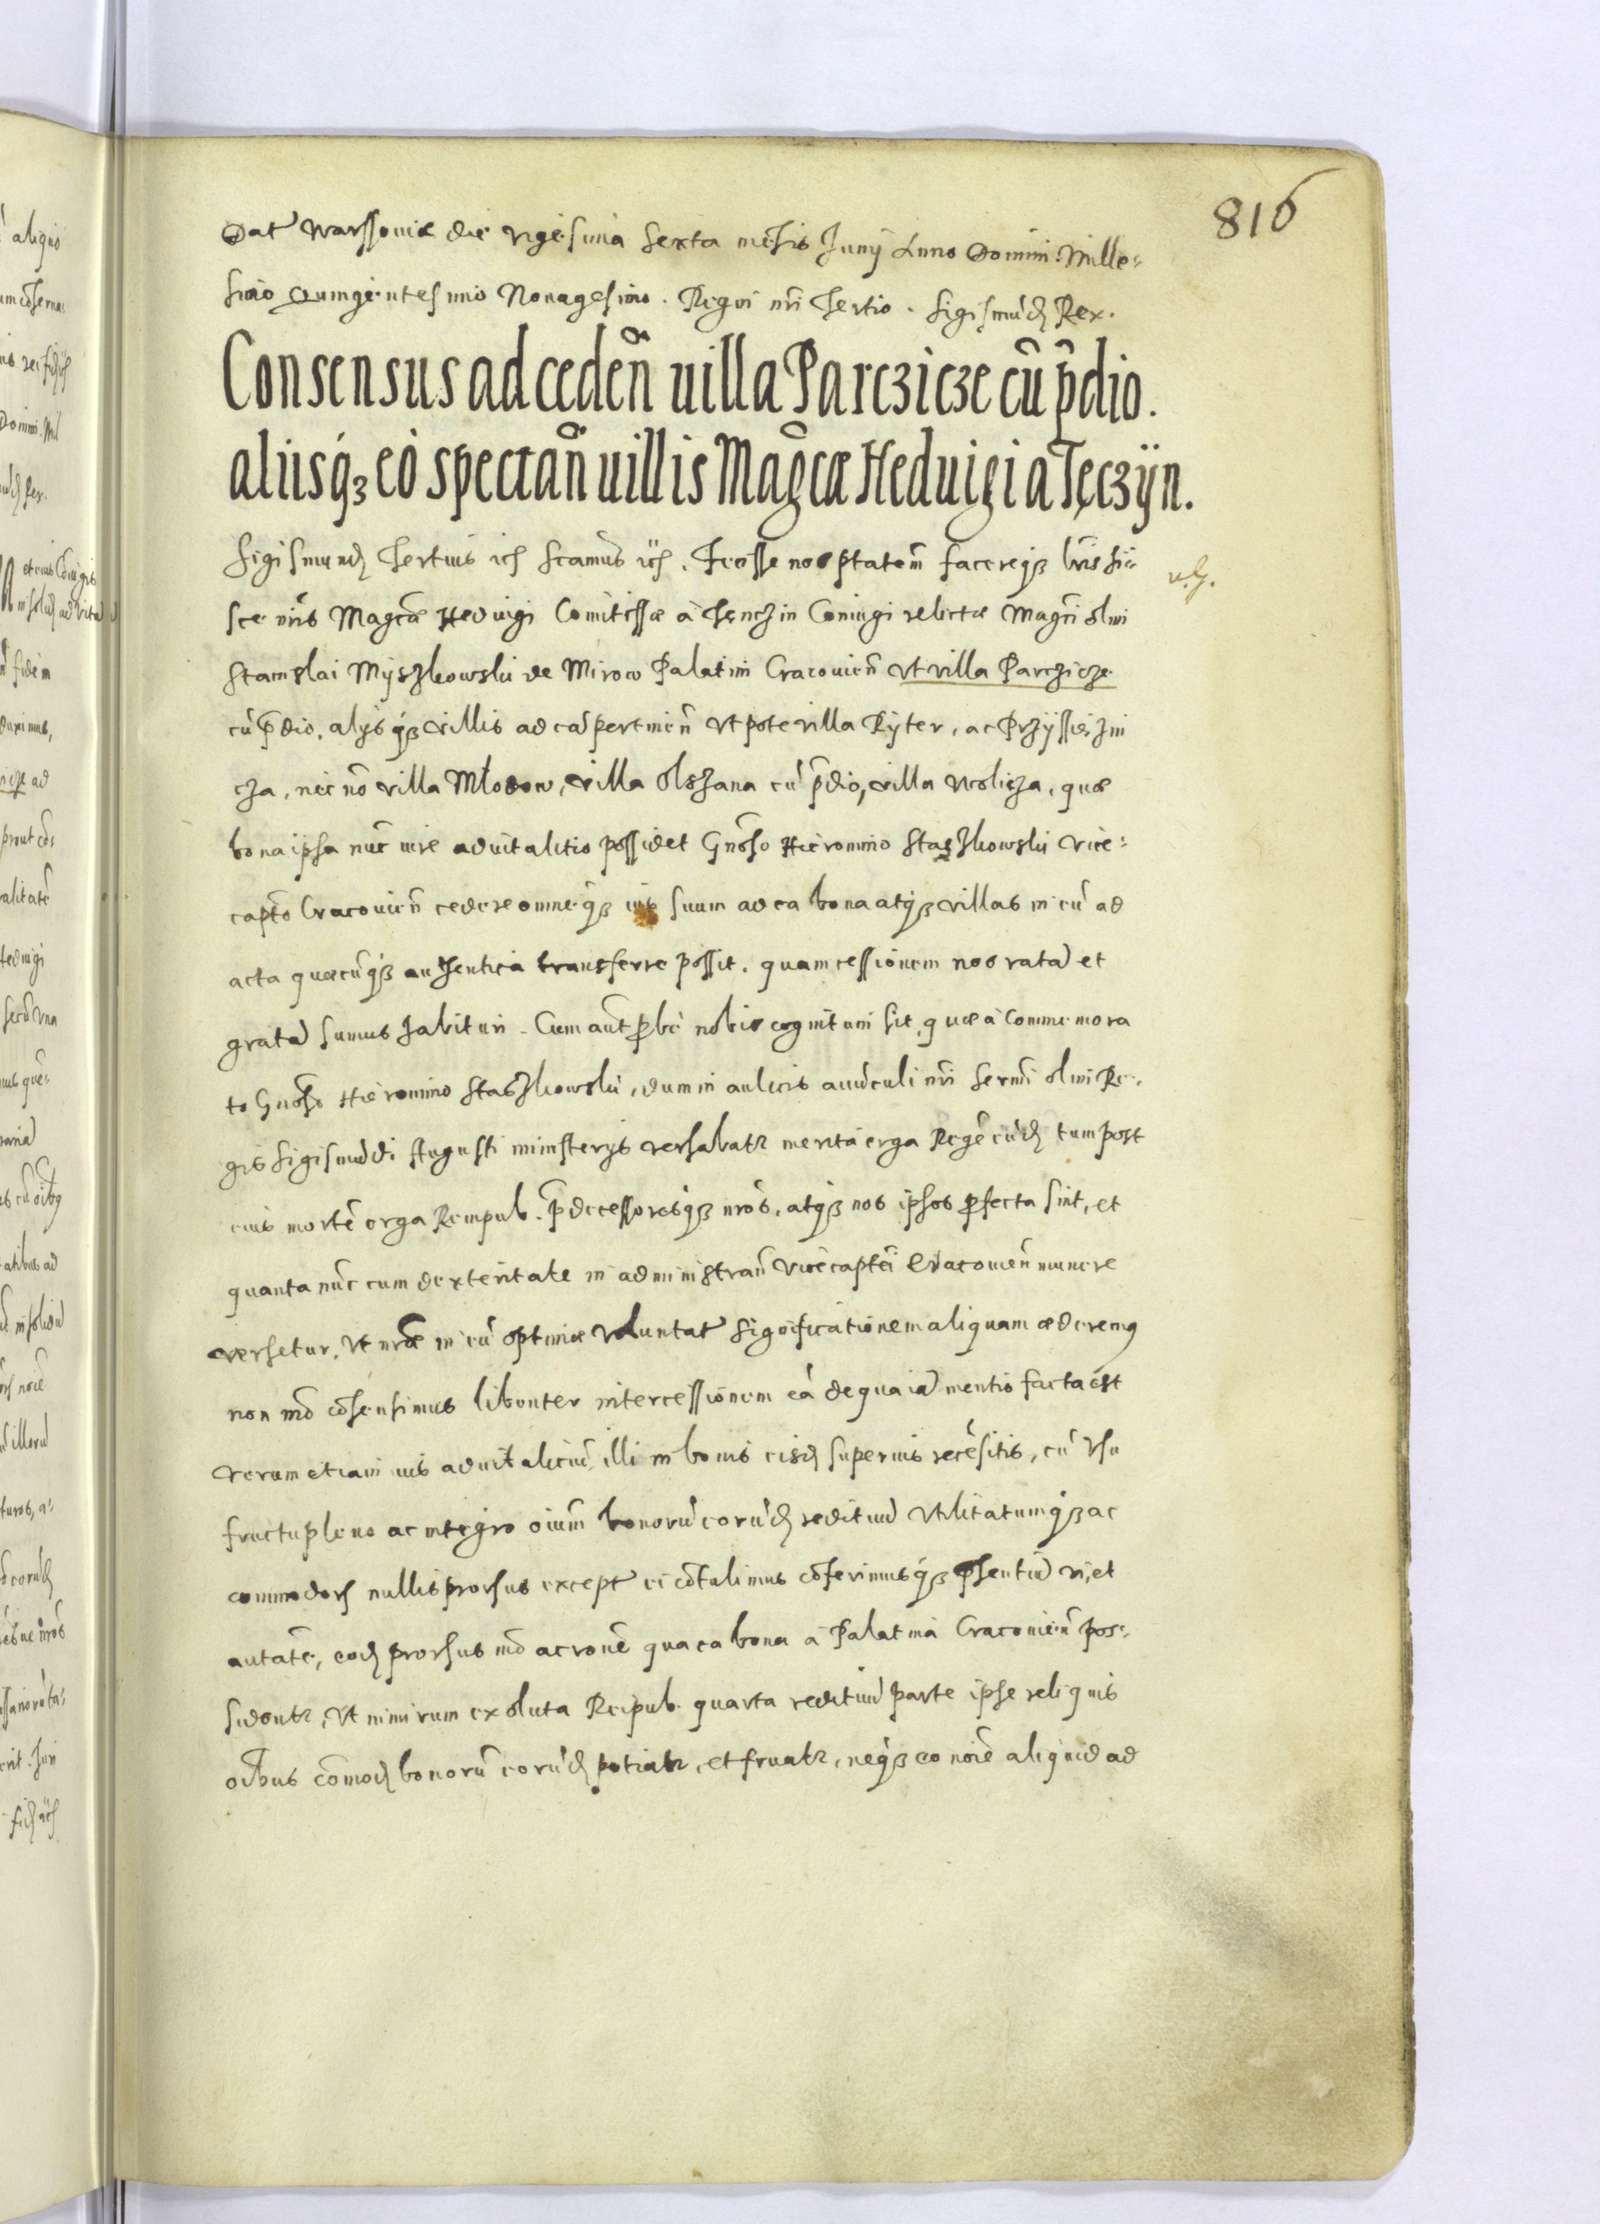 816
Dat Warssoviæ die vigesima sexta mēsis Junij Anno Domini Mille-
simo Quingentesimo Nonagesimo. Regni nri Tertio. Sigismūdꝫ Rex.
Consensus ad cedeñ uilla Parczicze cū p̄dio.
aliisq́ꝫ eò spectañ uillis Mag̃cæ Heduigi a Tęczÿn.
Sigismundꝫ Tertius etc Scamus etc. Fecisse nos ptatem facereq́ꝫ lris hi-
sce nris Mag̃cæ Hedvigi Comitissæ à Tęnczin Coniugi relictæ Mag̃ci olim
Stanislai Mÿszkowski de Mirow Palatini Cracovieñ vt villa Parczicze
cū p̄dio, alijsq́ꝫ villis ad eā pertineñ vtpote villa Rÿter, ac Przÿssieczni
cza, nec nō villa Młodow, villa Olszana cū p̄dio, villa Wolicza, quæ
bona ipsa nūc iure advitalitio possidet Gnoso Hieronimo Staszkowski vice-
capto Cracovieñ cedere omneq́ꝫ ius suum ad ea bona atq́ꝫ villas in eū ad
acta quæcūq́ꝫ authentica transferre possit. quam cessionem nos ratā et
gratā sumus habituri. Cum aūt probè nobis cognitum sit, quæ à commemora
to Gnoso Hieronimo Staszkowski, dum in aulicis avūculi nri Sermi olim Re-
gis Sigismūdi Augusti ministerijs versabatr merita erga Regē eūdꝫ tum post
eius mortē erga Rempub. p̄decessoresq́ꝫ nros, atq́ꝫ nos ipsos profecta sint, et
quanta nūc cum dexteritate in administrañ vicecaptei Cracovieñ munere
versetur, vt nræ in eū optimæ voluntat significationem aliquam æderemꝰ
non mō cōsensimus libenter intercessionem eā de qua iā mentio facta est
verum etiam ius advitaliciū illi in bonis eisdꝫ superius recēsitis, cū vsu
fructu pleno ac integro oium bonorū eorūdꝫ redituū vtilitatumq́ꝫ ac
commodorꝫ nullis prorsus except ei cōtulimus cōferimusq́ꝫ p̄sentiū vi, et
autate, eodꝫ prorsus mō ac rone qua ea bona à Palatina Cracovieñ pos-
sidentr, vt nimirum exoluta Reipub. quarta redituū parte ipse reliquis
oibus cōmodꝫ bonorū eorūdꝫ potiatr, et fruatr, neq́ꝫ eo noie aliquid ad